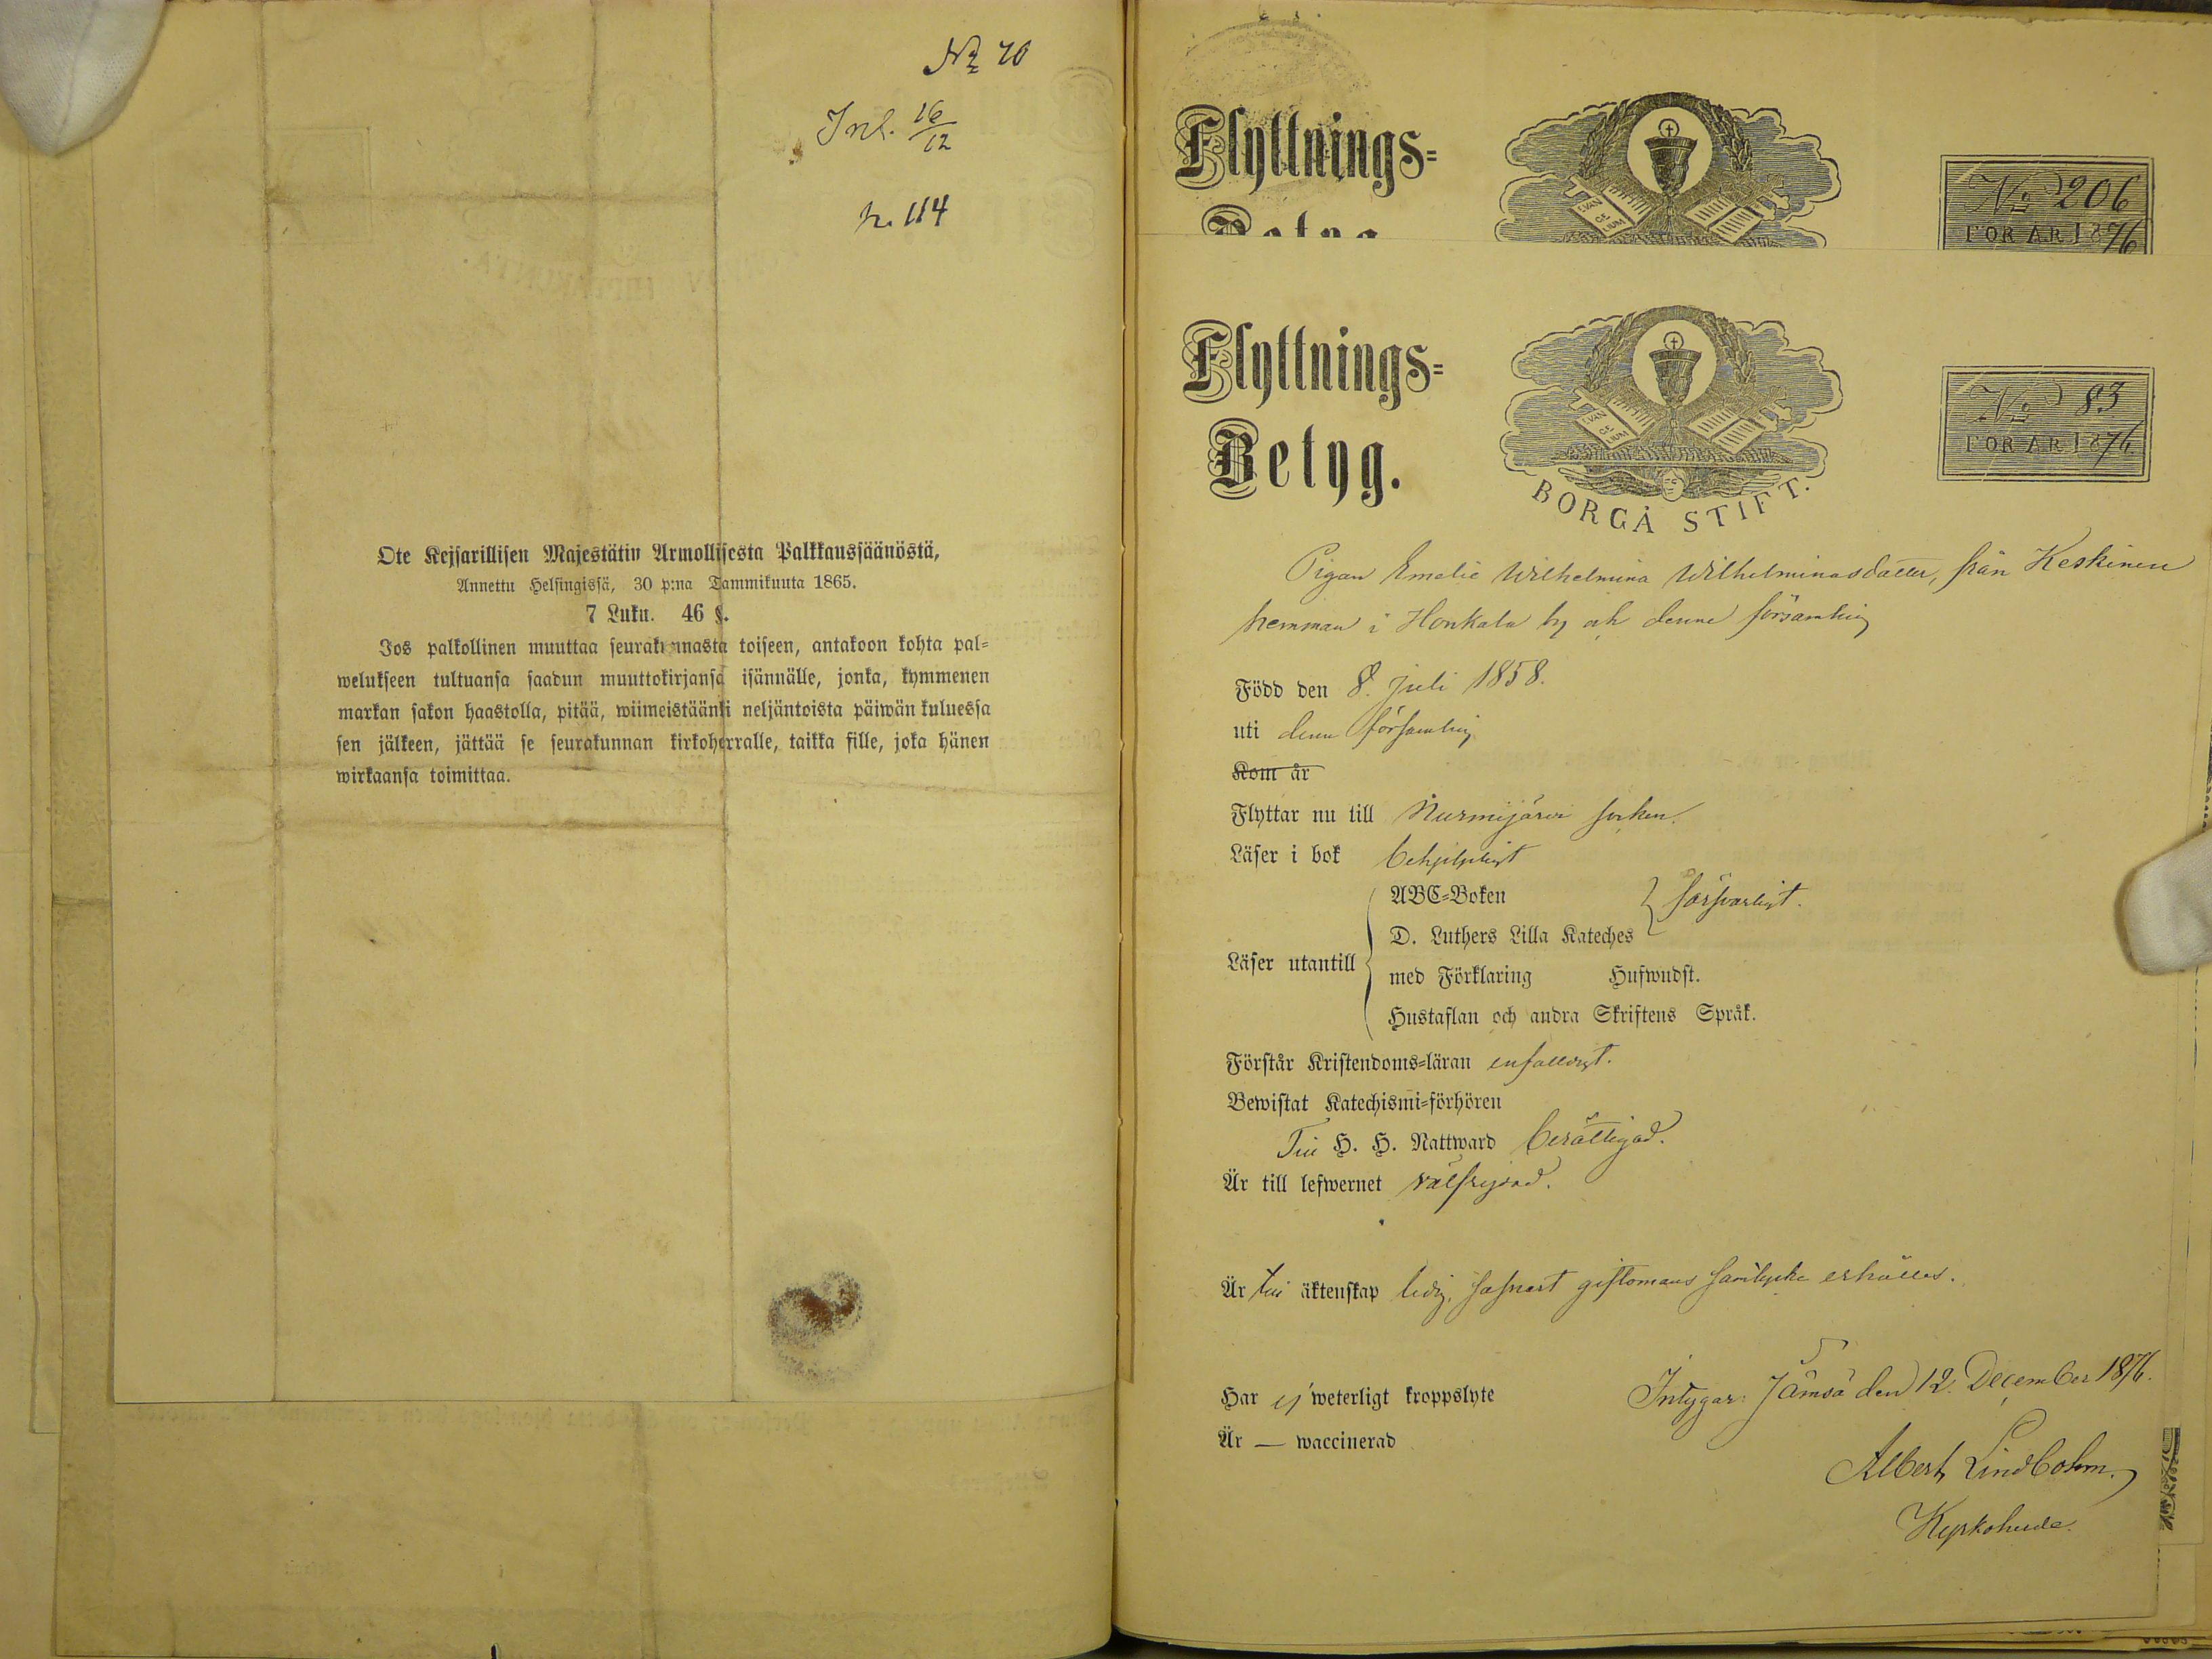 No 70
Inl. 16/12
p. 114
Ote Kejsarillisen Majestätin Armollisesta Palkkaussäänöstä,
Annettu Helsingissä, 30 p:na Tammikuuta 1865.
7 Luku. 46 §.
Jos palkollinen muuttaa seurakunnasta toiseen, antakoon kohta pal=
welukseen tultuansa saadun muuttokirjansa isännälle, jonka, kymmenen
markan sakon haastolla, pitää, wiimeistäänki neljäntoista päiwän kuluessa
sen jälkeen, jättää se seurakunnan kirkoherralle, taikka sille, joka hänen
wirkaansa toimittaa.
Flyttnings=
No 206
FÖR ÅR 1876
EVAN
GE
LIUM
Flyttnings=
Betyg.
EVAN
GE
LIUM
BORGÅ STIFT.
No 83
FÖR ÅR 1876.
Pigan Emelie Wilhelmina Wilhelminasdatter, från Keskinen
hemman i Honkala by och denne församling
Född den 8. Juli 1858.
uti denne församling
Kom år
Flyttar nu till Nurmijärvi socken.
Läser i bok behjelpligt
Läser utantill
ABC=Boken
D. Luthers Lilla Kateches
försvarligt.
med Förklaring Hufwudst.
Hustaflan och andra Skriftens Språk.
Förstår Kristendoms=läran enfaldigt.
Bewistat Katechismi=förhören
Till H. H. Nattward berättigad.
Är till lefwernet välfrejdad.
Är till äktenskap ledig, såsnart giftomans samtycke erhålles.
Har ej weterligt kroppslyte
Intygar: Jämsä den 12. December 1876.
Är — waccinerad
Albert Lindbohm.
Kyrkoherde.